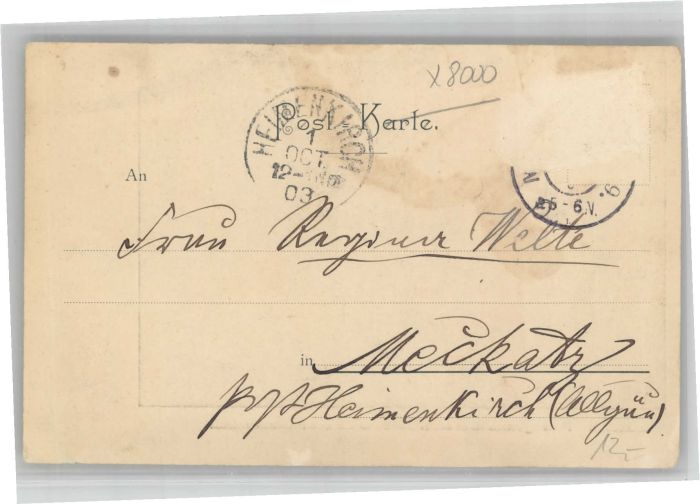 x 8000
Post-Karte.
HEIMENKIRCH
1
OCT.
12-1Nm
03
An
5-6V.
Frau Regina Welte
in Meckatz
p/p Heimenkirch (Allgäu)
12,-